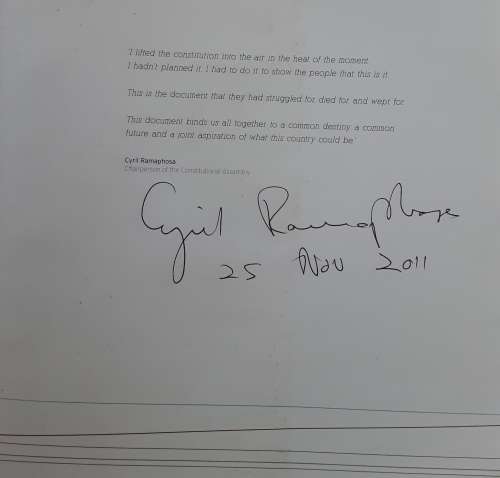 'I lifted the constitution into the air in the heat of the moment.
I hadn't planned it. I had to do it to show the people that this is it.
This is the document that they had struggled for, died for and wept for.
This document binds us all together to a common destiny, a common
future and a joint aspiration of what this country could be.'
Cyril Ramaphosa
Chairperson of the Constitutional Assembly
Cyril Ramaphosa
25 Nov 2011